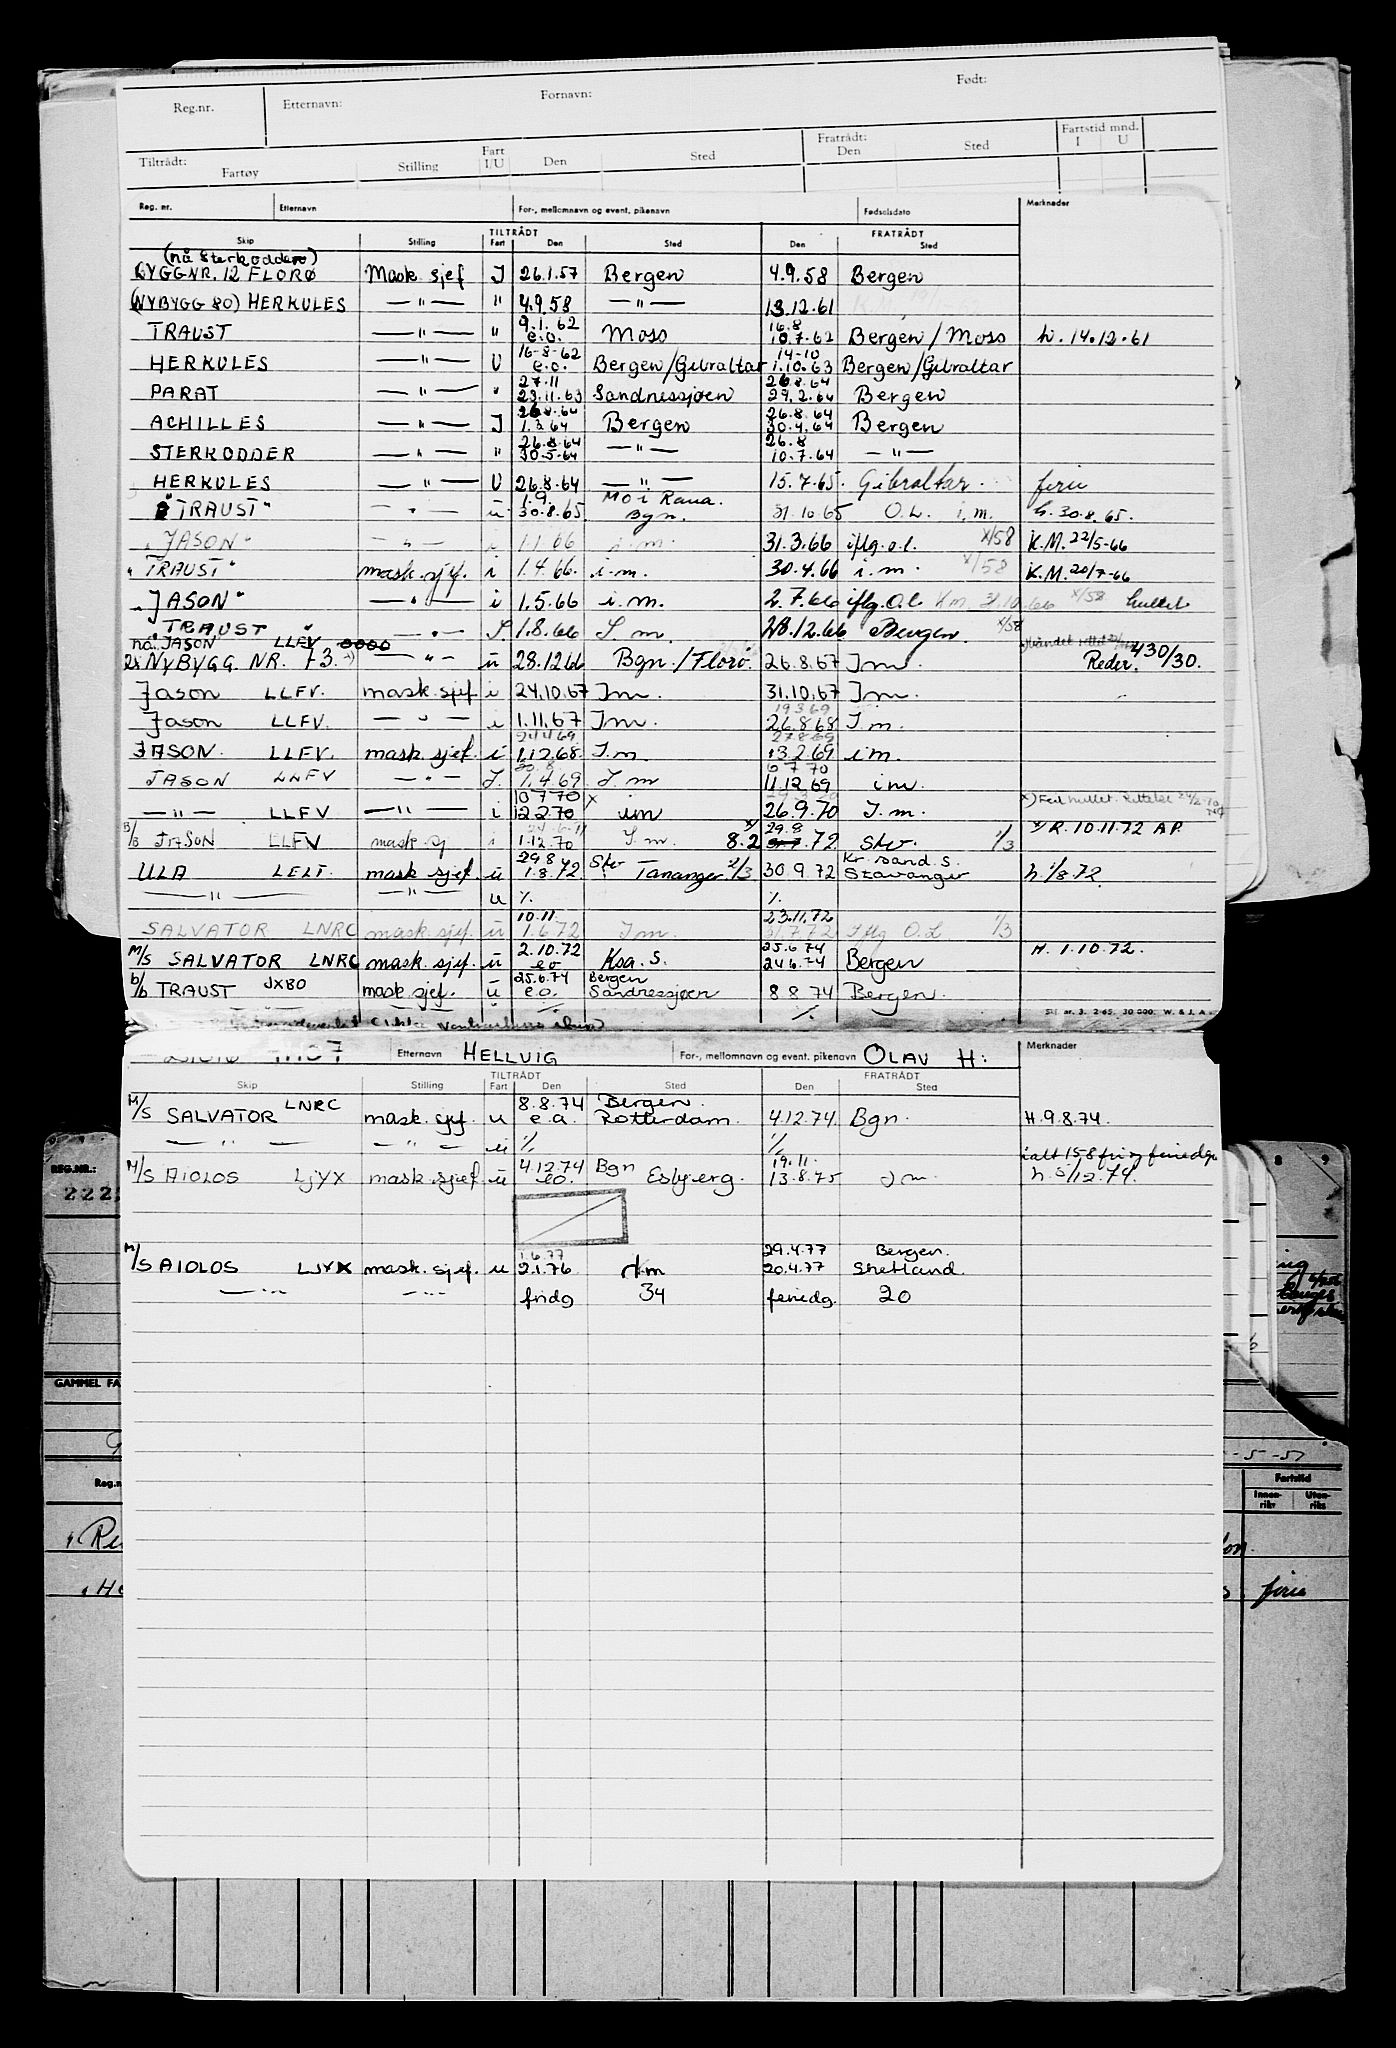 Reg.nr. Etternavn: Fornavn: Født:
Tiltrådt: Fratrådt: Fartstid mnd.
Fartøy Stilling Fart I/U Den Sted Den Sted I U
Reg. nr. Etternavn For-, mellomnavn og event. pikenavn Fødselsdato Merknader
TILTRÅDT FRATRÅDT
Skip Stilling Fart Den Sted Den Sted
(nå Sterkodder)
BYGGNR. 12 FLORØ Mask. sjef I 26.1.57 Bergen 4.9.58 Bergen
(NYBYGG 80) HERKULES — " — " 4.9.58 — " — 13.12.61
9.1.62 16.8
TRAUST — " — " e.o. Moss 10.7.62 Bergen/Moss h. 14.12.61
16-8-62 14-10
HERKULES — " — U e.o. Bergen/Gibraltar 1.10.63 Bergen/Gibraltar
27.11 26.8.64
PARAT — " — " 23.11.63 Sandnessjøen 29.2.64 Bergen
26.8.64 26.8.64
ACHILLES — " — I 1.3.64 Bergen 30.4.64 Bergen
26.8.64 26.8
STERKODDER — " — " 30.5.64 — " — 10.7.64 — " —
HERKULES — " — U 26.8.64 — " — 15.7.65. Gibraltar. ferie
1.9. Mo i Rana.
"TRAUST" — " — u 30.8.65 Bgn. 31.10.65 O.L. i.m. h. 30.8.65.
"JASON" — " — i 1.1.66 i.m. 31.3.66 iflg. o.l. x/58 K.M. 22/5-66
"TRAUST" mask. sjef. i 1.4.66. i.m. 30.4.66 i.m. x/58 K.M. 20/7-66
"JASON" — " — i 1.5.66 i.m. 2.7.66 iflg. O.l. Km. 31.10.66 x/58 hullet
TRAUST — " — I 1.8.66 I m. 28.12.66 Bergen. x/58
nå JASON LLFV
NYBYGG. NR. 73. — " — u 28.12.66 Bgn./Florø. 26.8.67 I m. Reder. 430/30.
Jason LLFV. mask. sjef i 24.10.67 I m. 31.10.67 I m.
19 3 69
Jason LLFV. — " — i 1.11.67 I m. 26.8.68 I.m.
24 4 69 27.8.69
JASON. LLFV. mask. sjef. i 1.12.68. I m. 13.2.69 i m.
20.8 6 7 70
JASON LLFV — " — I. 1.4.69. I. m 11.12.69 im.
10 7 70
— " — LLFV — " — i 12.2.70 x im 26.9.70 I. m. x) Feil hullet. Rettelse
24.6.71 29.8
B/B JASON LLFV mask. sj i 1.12.70 I. m. 8.2 .72 Stv. 1/3 x/ R. 10.11.72 AP.
29.8 Stv Kr.sand S.
ULA LELT. mask. sjef. u 1.8.72 Tananger 2/3 30.9.72 Stavanger h. 1/8.72.
— " — — " — u ٪ ٪
10.11. 23.11.72
SALVATOR LNRC mask. sjef. u 1.6.72 I m. 31.7.72 Iflg O.L 1/3
2.10.72 25.6.74
M/S SALVATOR LNRC mask. sjef. u eo Ksa. S. 24.6.74 Bergen H. 1.10.72.
25.6.74 Bergen
b/b TRAUST JXBO mask. sjef. u e.o. Sandnessjøen 8.8.74 Bergen.
Skj. nr. 3. 2-65. 30 000. W. & J. A.
Etternavn HELLVIG For-, mellomnavn og event. pikenavn OLAV H: Merknader
TILTRÅDT FRATRÅDT
Skip Stilling Fart Den Sted Den Sted
8.8.74 Bergen.
M/S SALVATOR LNRC mask. sjef. u e.o. Rotterdam. 4.12.74 Bgn. H. 9.8.74.
— " — — " — u ٪ ٪ ialt 158 fri og feriedgr
4.12.74 Bgn 19.11.
M/S AIOLOS LJYX mask. sjef. u eo. Esbjerg. 13.8.75 I m. h. 5/12.74.
1.6.77 29.4.77 Bergen.
M/S AIOLOS LJYX mask. sjef. u 2.1.76 I m 20.4.77 Shetland.
— " — — " — fridg 34 feriedg. 20
REG.NR.: 8 9
222
GAMMEL FA
-5-57
Reg.n Fartstid
Innen-riks Uten-riks
ferie